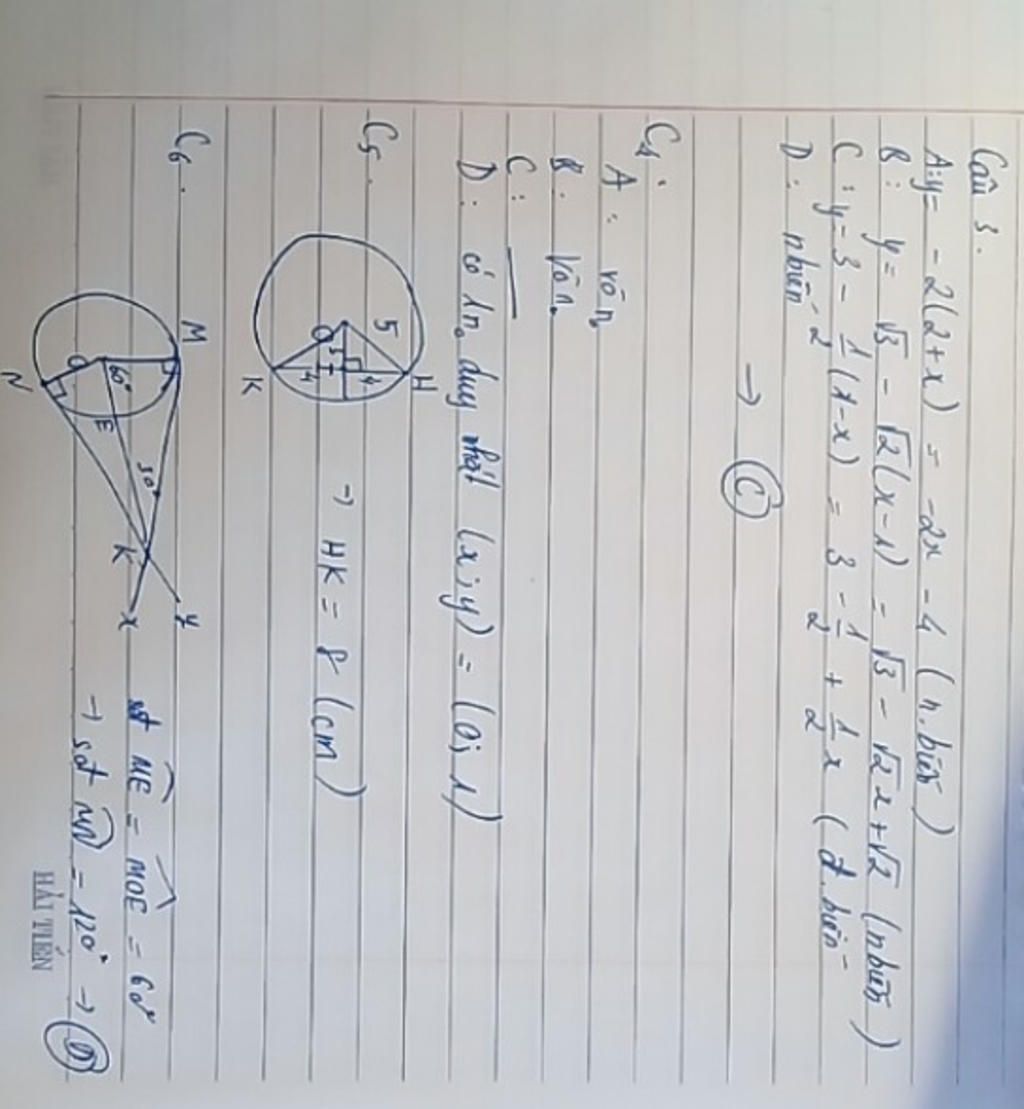 Câu 3.
A: y = -2(2+x) = -2x - 4 (n.biến)
B: y = √3 - √2(x-1) = √3 - √2x + √2 (nbiến)
C: y = 3 - 1/2(1-x) = 3 - 1/2 + 1/2x (đ.biến)
D: nbiến
→ C
C4.
A: vô n0
B: vô n0
C:
D: có 1n0 duy nhất (x;y) = (0;1)
C5.
H
5
4
O
3
I
4
K
→ HK = 8 (cm)
C6.
M
y
30°
60°
O
E
K
x
N
sđ ME = MOE = 60°
→ sđ MN = 120° → D
HẢI TIẾN